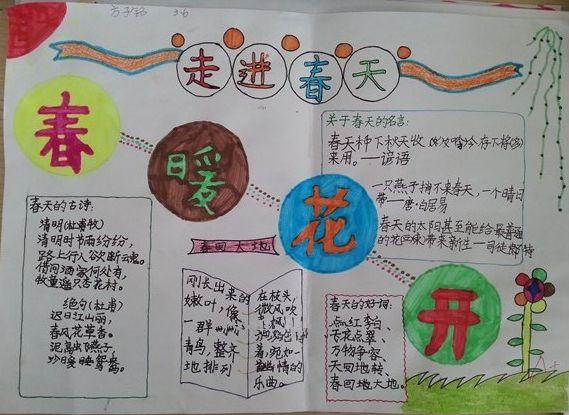 方子铭 3.6
走进春天
春暖花开
关于春天的名言：
春天种下秋天收
来用。——谚语
一只燕子担不来春天，一个晴日
带一唐·白居易
春天的太阳甚至能给最普通
的花回来带来新生一司徒·特
春天的古诗：
清明(杜甫牧)
清明时节雨纷纷，
路上行人欲断云魂。
借问酒家何处有，
牧童遥只杏花村。
绝句(杜甫)
迟日江山丽，
春风花草香。
泥融虫飞燕子，
沙暖睡鸳鸯。
春回大地
刚长出来的
嫩叶，像
一群
青鸟，整齐
地排列
在枝头，
微风吹
着，宛如一
情的
乐曲。
春天的好词：
点红李白
千花点翠、
万物争容、
天回地转、
春回地大地。